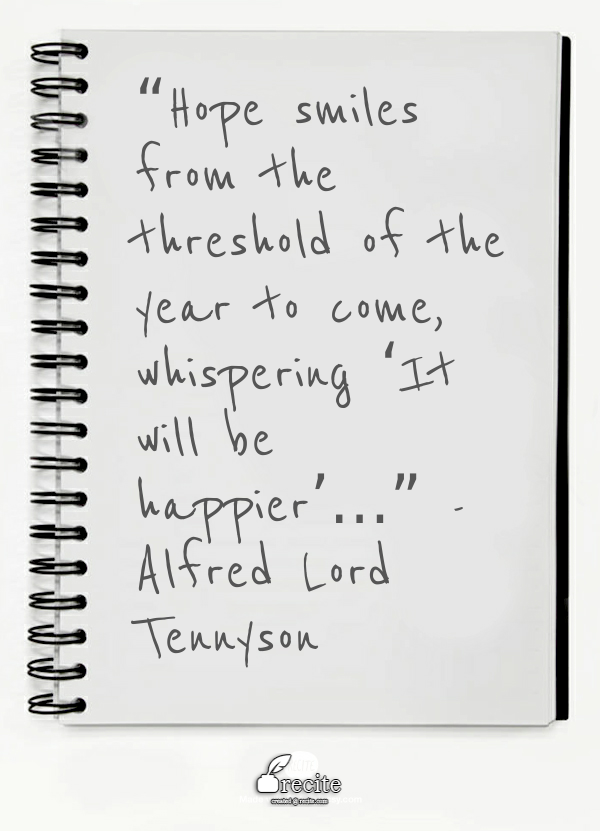 “Hope smiles
from the
threshold of the
year to come,
whispering ‘It
will be
happier’...” -
Alfred Lord
Tennyson
recite
created @ recite.com